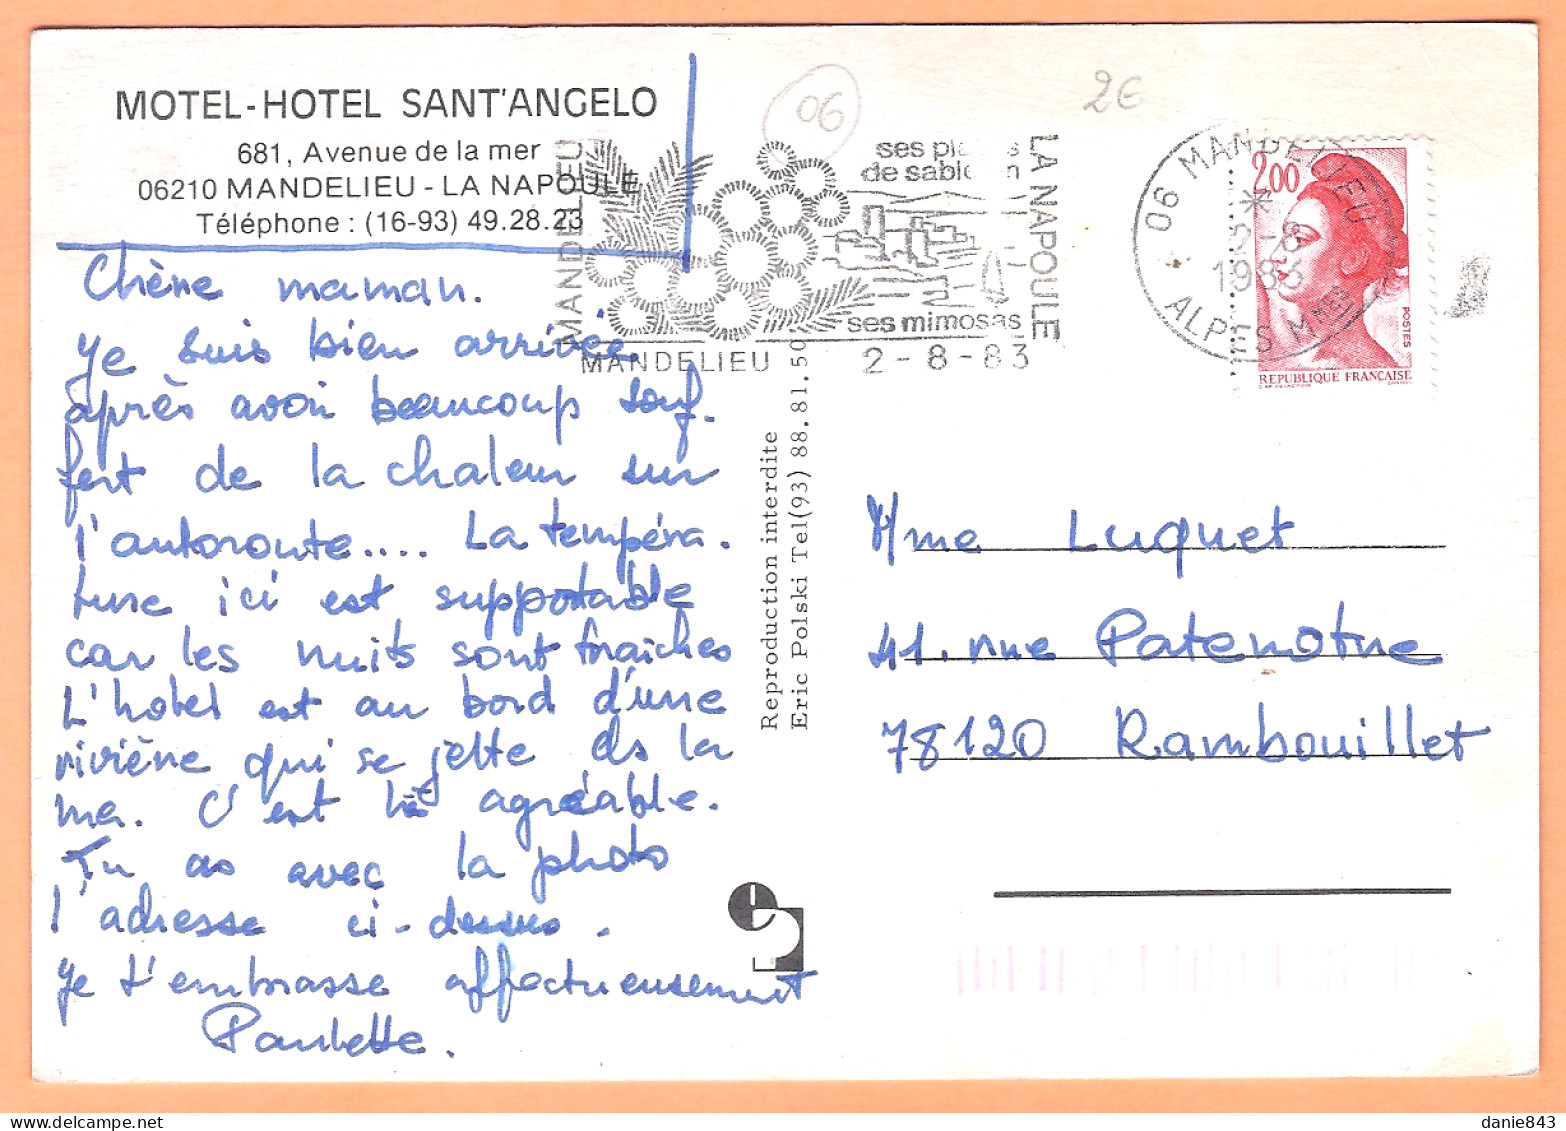 MOTEL-HOTEL SANT'ANGELO
681, Avenue de la mer
06210 MANDELIEU - LA NAPOULE
Téléphone : (16-93) 49.28.23
Chère maman.
Je suis bien arrivée
après avoir beaucoup souf-
fert de la chaleur sur
l'autoroute.... La tempéra-
ture ici est supportable
car les nuits sont fraiches
L'hotel est au bord d'une
rivière qui se jette ds la
mer. C'est agréable.
Tu as avec la photo
l'adresse ci-dessus.
Je t'embrasse affectueusement
Paulette.
06
2€
MANDELIEU
ses
de sable
LA NAPOULE
ses mimosas
MANDELIEU 2-8-83
06 MANDELIEU
2-8
1983
ALPES MME
2,00
POSTES
REPUBLIQUE FRANÇAISE
Reproduction interdite
Eric Polski Tel(93) 88.81.50
Mme Luquet
41. rue Patenotre
78120 Rambouillet
danie843